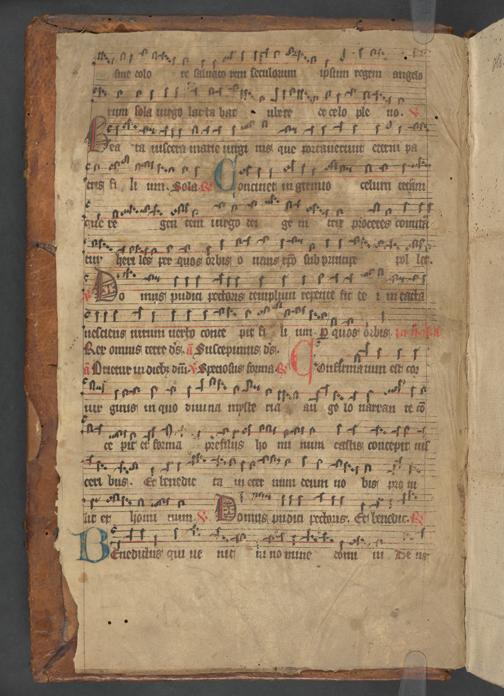 sine colo re saluato rem seculorum ipsum regem angelo
rum sola uirgo lac ta bat ubere de celo ple no. V
Bea ta uiscera marie uirgi nis que portauerunt eterni pa
tris fi li um. Sola. R Continet in gremio celum terram
que re gen tem uirgo dei ge ni trix proceres comitan
tur heri les per quos orbis o uans xpo sub principe pol let
V Do mus pudici pectoris templum repente fit de i intacta
nesciens uirum uerbo conce pit fi li um. P quos orbis.
Rex omnis terre ds. a Suscepimus ds.
a Orietur in dieb; dni V Speciosus forma. R Confirmatum est cor
uir ginis in quo diuina myste ria an ge lo nuncian te con
ce pit et forma prefilius ho mi num castis concepit uis
ceri bus. Et benedic ta in eter num deum no bis pro tu
lit et homi num. V Domus pudici pectoris. Et benedic. R
Benedictus qui ue nit in no mine domi ni De us